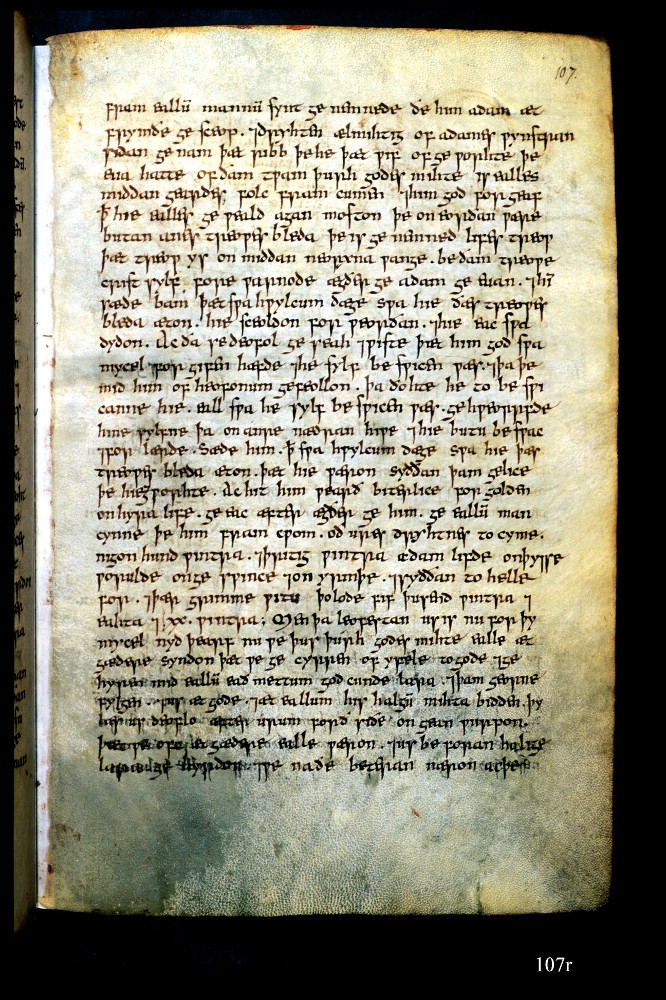 107.
fram eallū mannū synt ge nemnede ðe him adam æt
frymðe ge sceop. ⁊dryhten ælmihtig of adames
sidan ge nam þæt ribb þe he þæt wif of ge worhte þe
eua hatte of ðam twam þurh godes mihte is ealles
middan geardes folc fram cumen ⁊him god for geaf
ꝥ hie ealles ge weald agan moston þe on eorðan wære
butan anes treowes bleda þe is ge nemned lifes treow
þæt treow ys on middan neorxna wange. be ðam treowe
crist sylf. fore warnode ægðer ge adam ge euan. ⁊him
sæde bam þæt swa hwylcum dæge swa hie ðæs treowes
bleda æton. hie sceoldon for weorðan. ⁊hie eac swa
dydon. Ac ða se deofol ge seah ⁊wiste þæt him god swa
mycel for gifen hæfde ⁊he sylf be swicen wæs. ⁊þa þe
mid him of heofonum gefeollon. þa ðohte he to be swi
canne hie. eall swa he sylf be swicen wæs. ge hweorfde
hine sylfne þa on anre nædran hiwe ⁊hie butu be swac
⁊for lærde. Sæde him. ꝥ swa hwylcum dæge swa hie þæs
treowes bleda æton. þæt hie wæron syððan þam gelice
þe hie geworhte. Ac hit him wearð biterlice for golden
on hyra life. ge eac æfter ægðer ge him. ge eallū man
cynne þe him fram cwom. oð ures dryhtnes to cyme.
nigon hund wintra. ⁊þritig wintra adam lifde on þysse
worulde on ge swince ⁊on yrmþe. ⁊syððan to helle
for. ⁊þær grimme witu þolode fif þusend wintra ⁊
⁊.xx. wintra; Men þa leofestan us is nu for þy
mycel nyd þearf nu we þus þurh godes mihte ealle æt
gædere syndon þæt we ge cyrren of yfele to gode ⁊ge
hyren mid eallū ead mettum god cunde lara. ⁊þam georne
fylgen. æt gode. ⁊æt eallum his halgū mihta bidden. þy
læs us deoflo æfter urum forð siðe on gean wurpon.
þæt we æt gædere ealle wæron. ⁊us be foran halige
⁊we na ðe beteran næron
107r